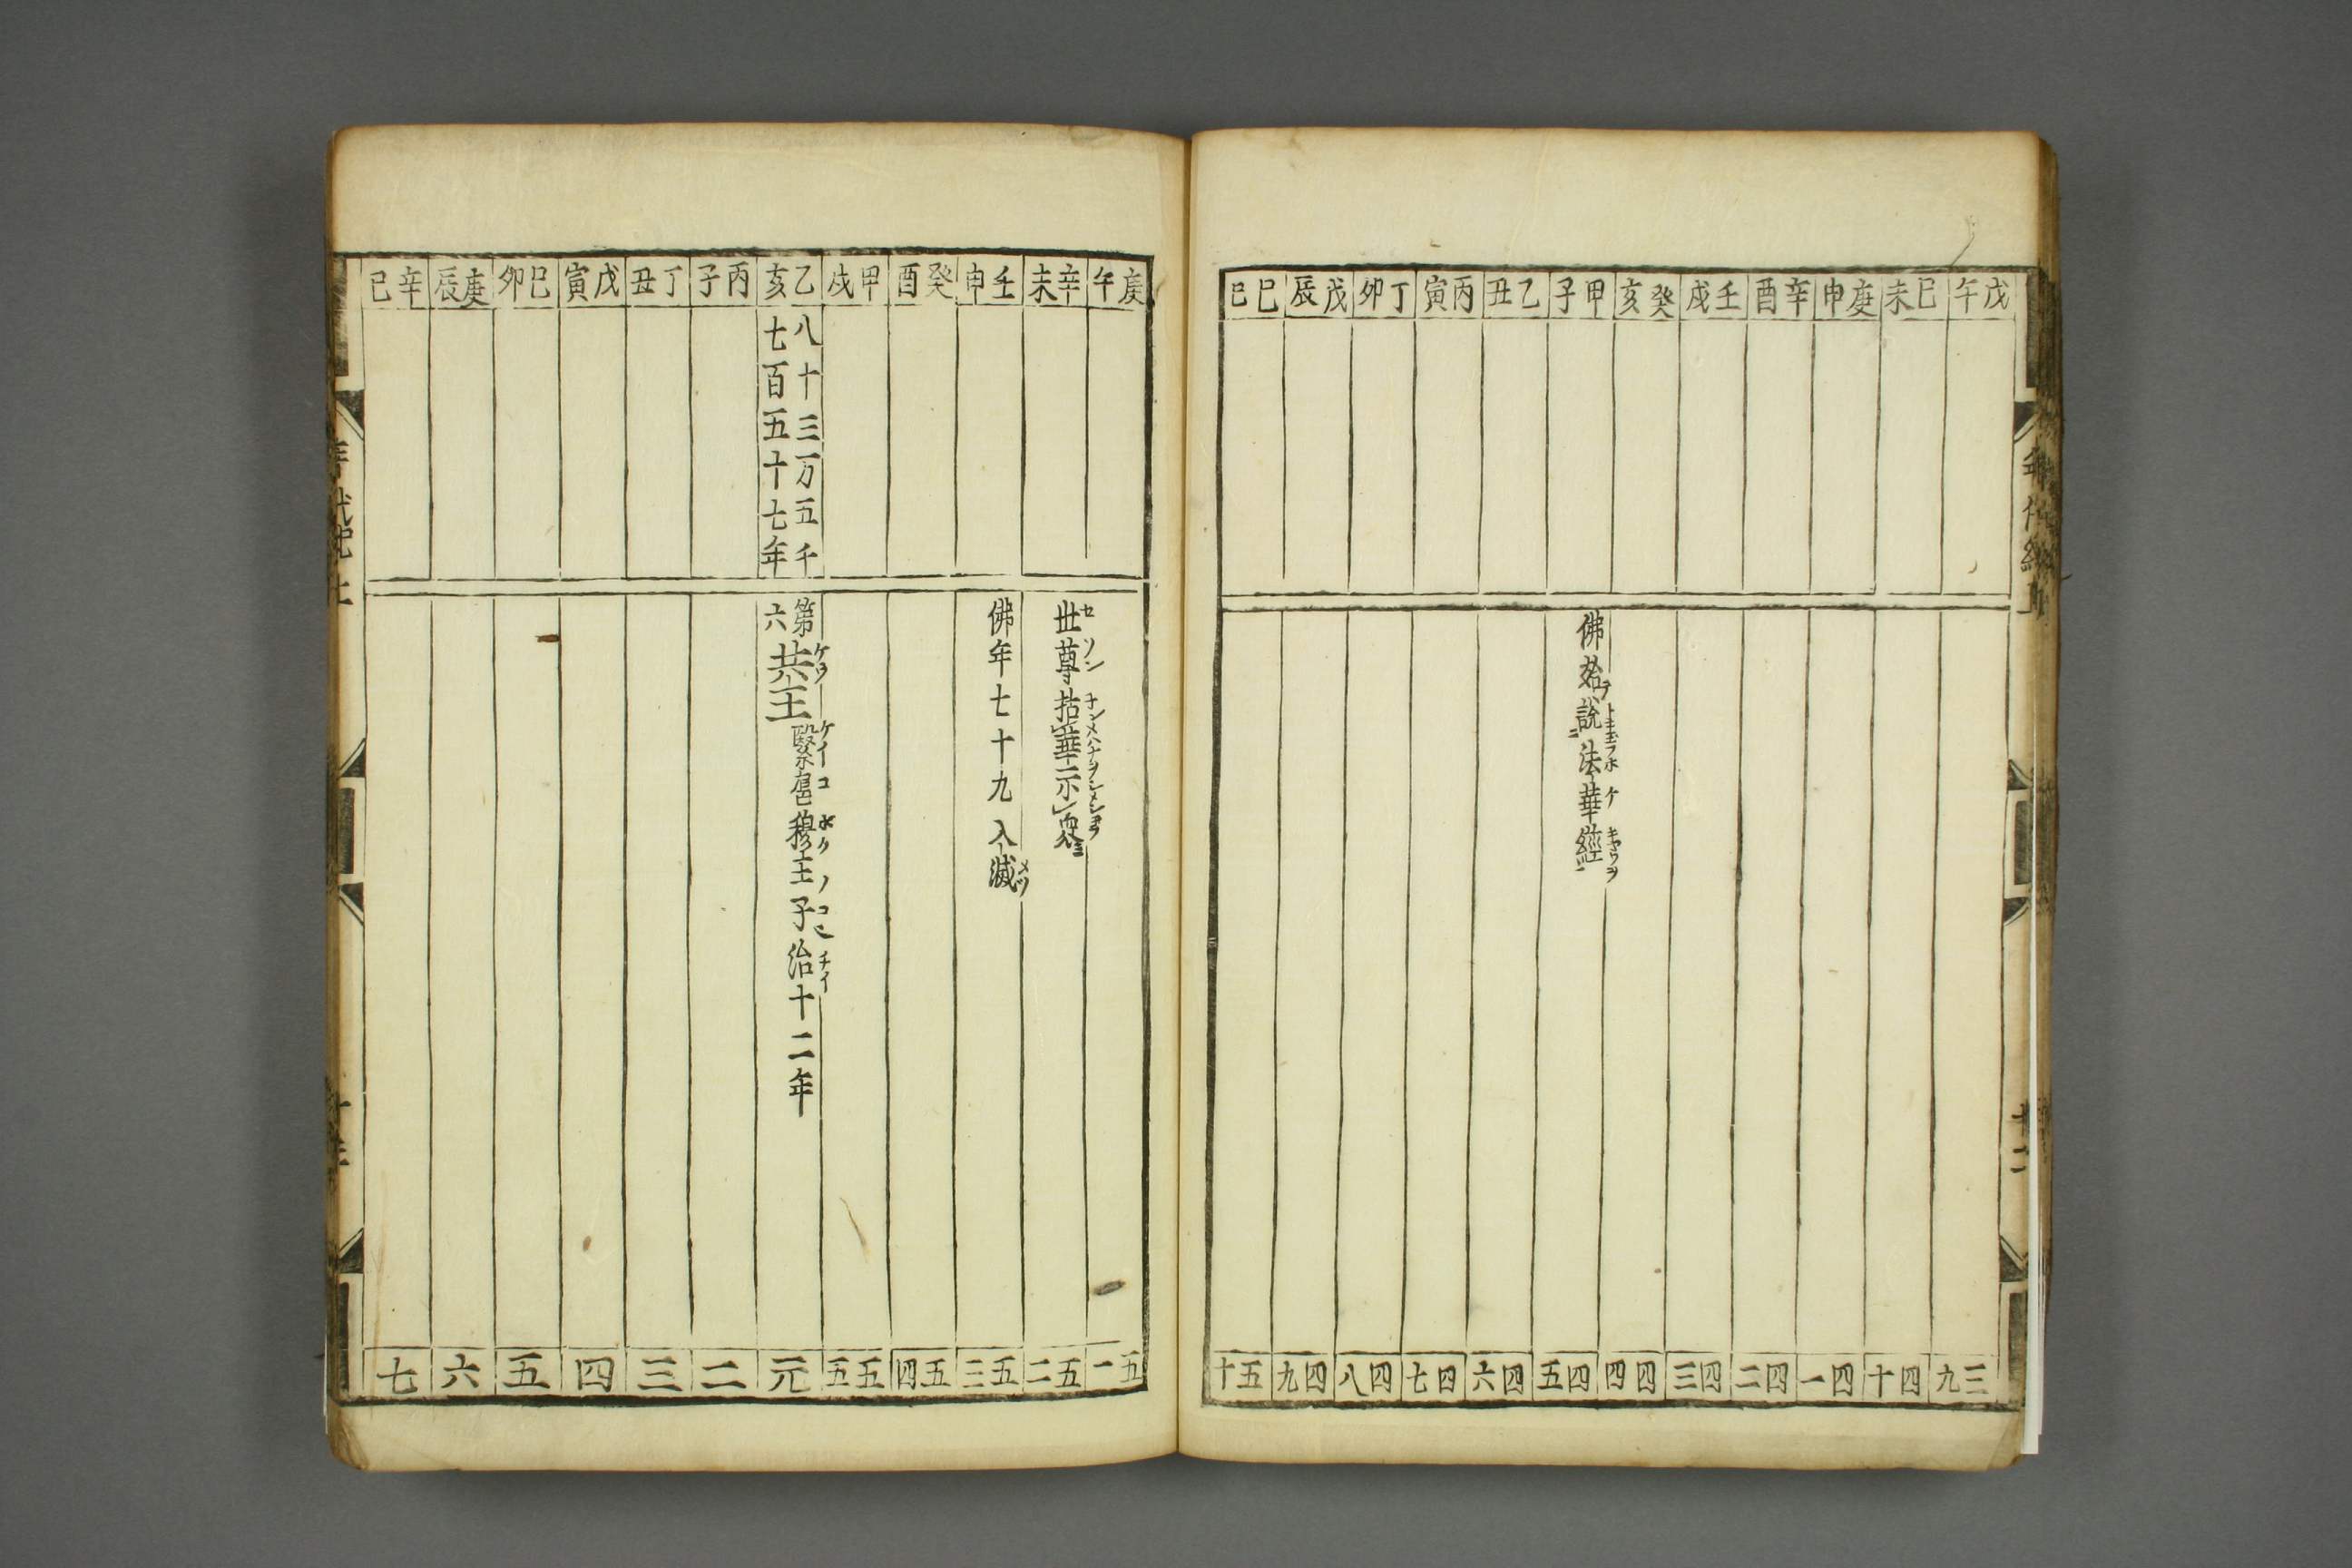 戊午
己未
庚申
辛酉
壬戌
癸亥
甲子
乙丑
丙寅
丁卯
戊辰
己巳
佛始テ說玉フ法華經ヲ
三九
四十
四一
四二
四三
四四
四五
四六
四七
四八
四九
五十
庚午
辛未
壬申
癸酉
甲戌
乙亥
丙子
丁丑
戊寅
己卯
庚辰
辛巳
八十三万五千
七百五十七年
世尊拈華示衆
佛年七十九入滅
第六共王繄扈穆王子治十二年
五一
五二
五三
五四
五五
元
二
三
四
五
六
七